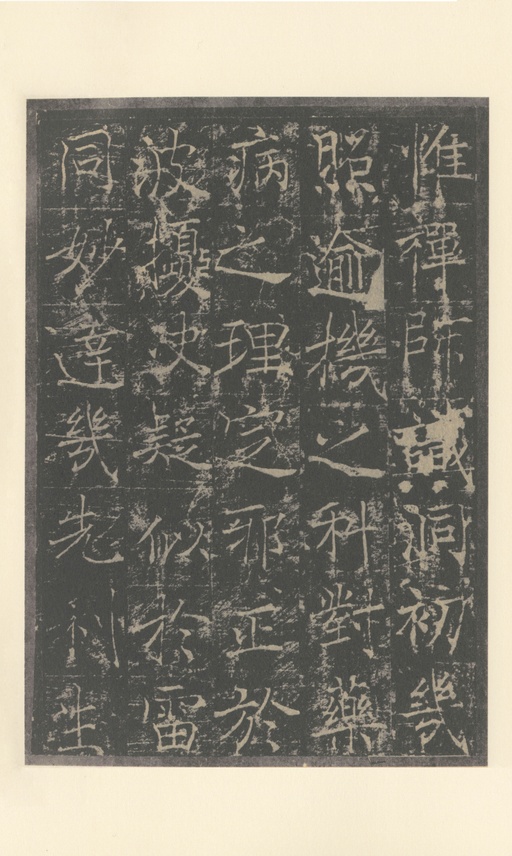 惟禪師識洞初幾
照逾機之科對藥
病之理定邪正於
波摇决疑似於雷
同妙達幾先利生